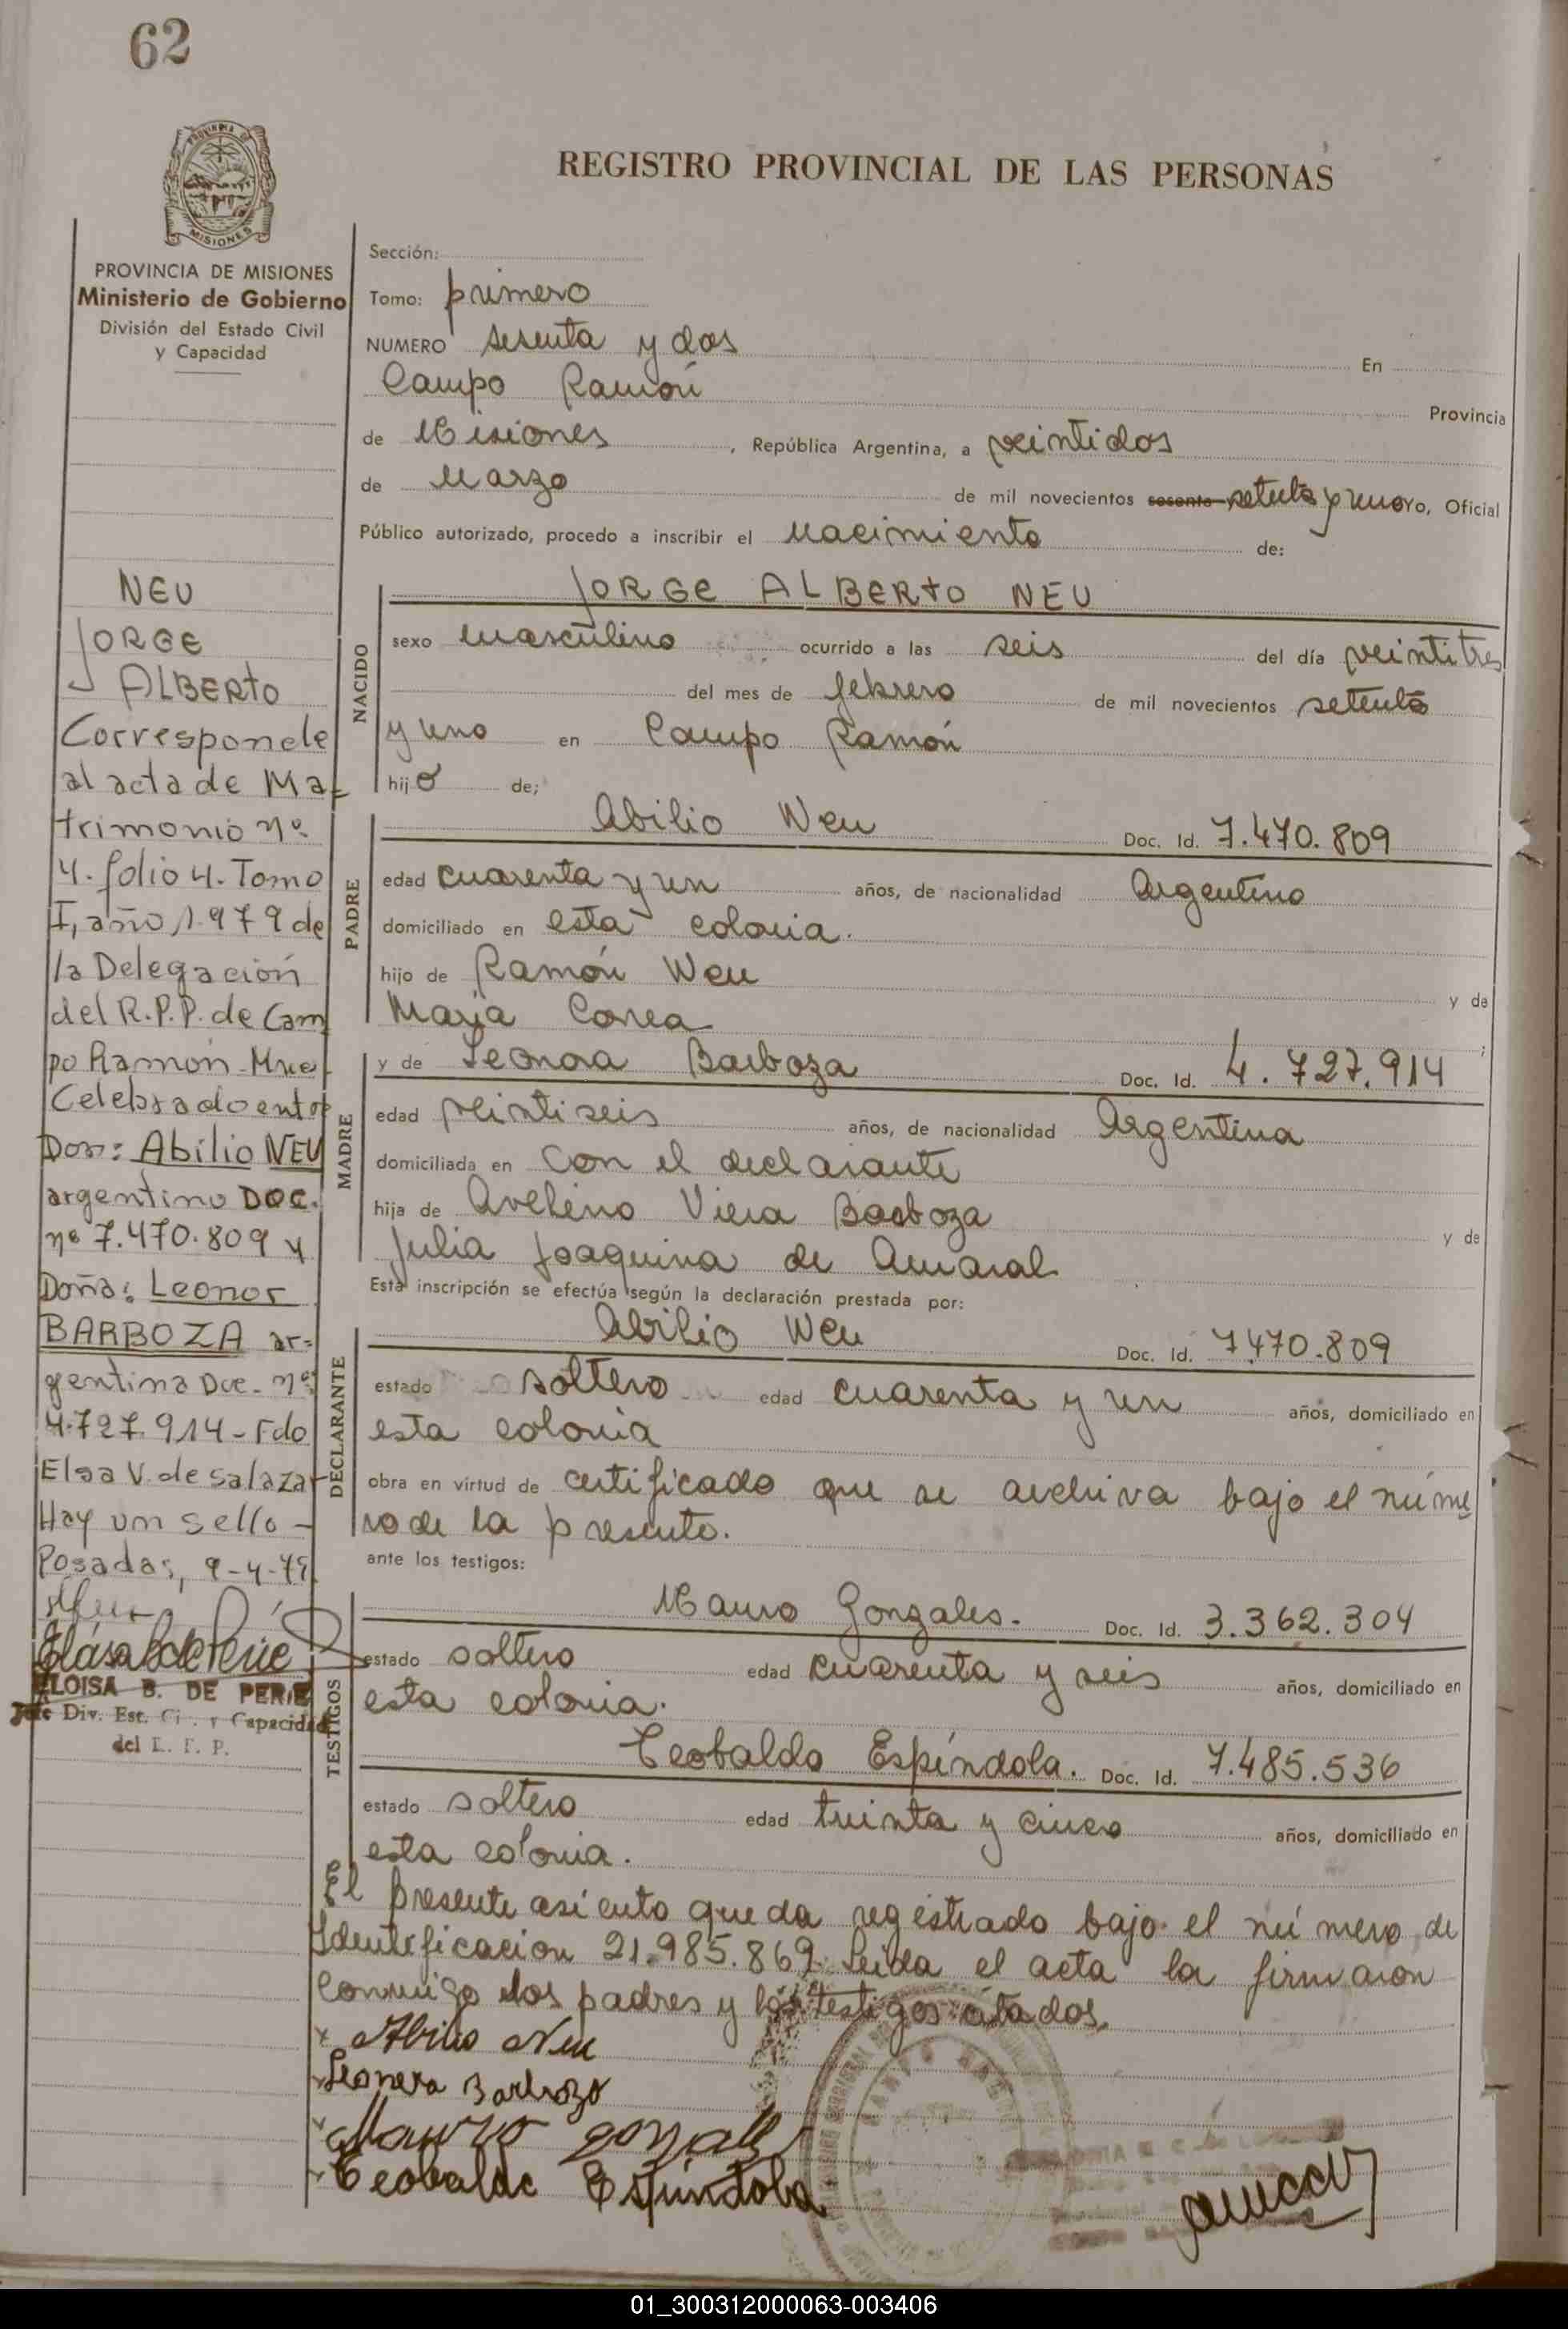 62
REGISTRO PROVINCIAL DE LAS PERSONAS
PROVINCIA DE MISIONES
Ministerio de Gobierno
División del Estado Civil
y Capacidad
NEU
JORGE
ALBERTO
Corresponde
al acta de Ma-
trimonio nº
4. folio 4. Tomo
I, año 1.979 de
la Delegación
del R.P.P. de Cam
po Ramón - Mnes
Celebrado entre
Don: Abilio NEU
argentino DOC.
nº 7.470.809 y
Doña: Leonor
BARBOZA ar-
gentina Doc. nº
4.727.914 - Fdo
Elsa V. de Salazar
Hay un sello -
Posadas, 9-4-79
ELOISA B. DE PERIE
Jefe Div. Est. Ci. y Capacidad
del R. P. P.
Sección:
Tomo: primero
NUMERO sesenta y dos En
Campo Ramón Provincia
de Misiones, República Argentina, a veintidos
de Marzo de mil novecientos sesenta setenta y uno yo, Oficial
Público autorizado, procedo a inscribir el Nacimiento de:
NACIDO
JORGE ALBERTO NEU
sexo masculino ocurrido a las seis del día veintitres
del mes de febrero de mil novecientos setenta
y uno en Campo Ramón
hijo de;
PADRE
Abilio Neu Doc. Id. 7.470.809
edad cuarenta y un años, de nacionalidad Argentino
domiciliado en esta colonia.
hijo de Ramón Neu y de
Maria Correa ;
MADRE
y de Leonora Barboza Doc. Id. 4.727.914
edad veintiseis años, de nacionalidad Argentina
domiciliada en con el declarante
hija de Avelino Viera Barboza y de
Julia Joaquina de Amaral
Esta inscripción se efectúa según la declaración prestada por:
DECLARANTE
Abilio Neu Doc. Id. 7.470.809
estado soltero edad cuarenta y un años, domiciliado en
esta colonia
obra en virtud de certificado que se archiva bajo el núme
ro de la presente.
ante los testigos:
TESTIGOS
Mauro Gonzales. Doc. Id. 3.362.304
estado soltero edad cuarenta y seis años, domiciliado en
esta colonia.
Teobaldo Espíndola. Doc. Id. 7.485.536
estado soltero edad treinta y cinco años, domiciliado en
esta colonia.
El presente asiento queda registrado bajo el número de
Identificacion 21.985.869. Leida el acta la firmaron
conmigo los padres y los testigos citados.
x Abilio Neu
x Leonera Barbozo
x Mauro gonzalez
x Teobaldo Espindola
01_300312000063-003406